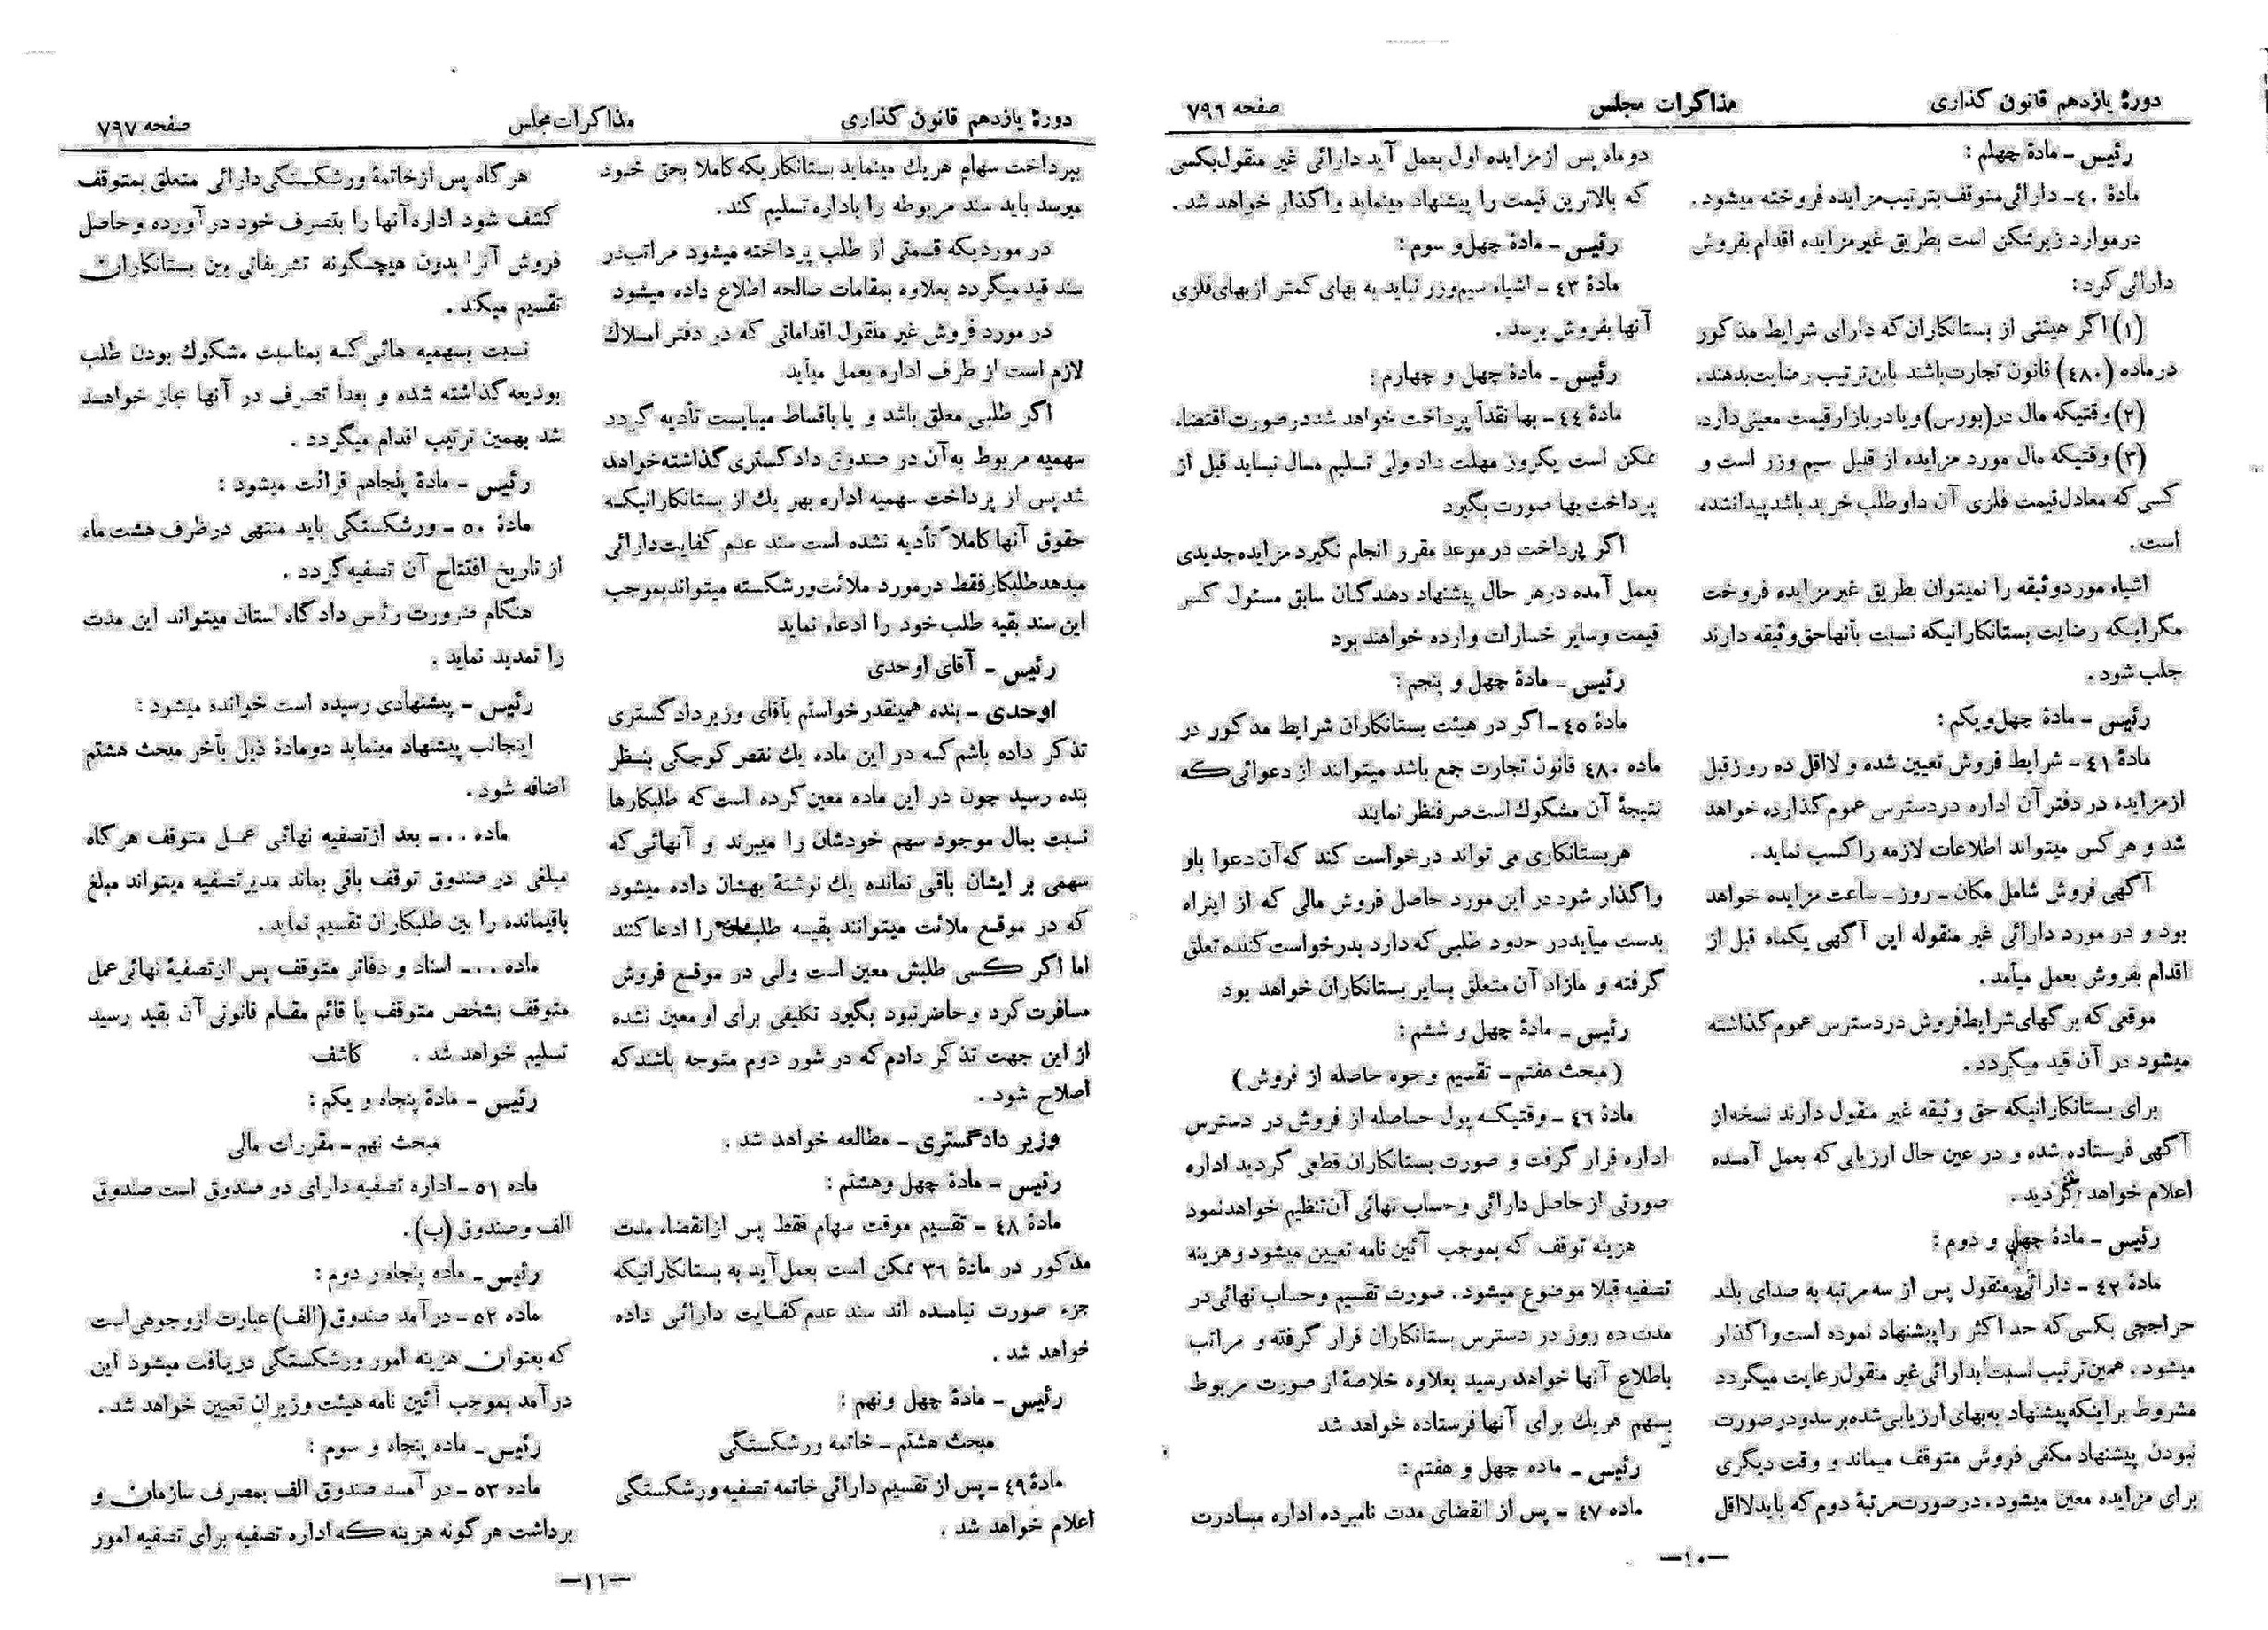 دورهٔ یازدهم قانون گذاری
مذاکرات مجلس
صفحه ۷۹۶
رئیس ـ مادهٔ چهلم :
مادهٔ ۴۰ـ دارائی متوقف بترتیب مزایده فروخته میشود .
در موارد زیر ممکن است بطریق غیر مزایده اقدام بفروش
دارائی کرد :
(۱) اگر هیئتی از بستانکاران که دارای شرایط مذکور
در ماده (۴۸۰) قانون تجارت باشند باین ترتیب رضایت بدهند .
(۲) وقتیکه مال در (بورس) و یا در بازار قیمت معینی دارد.
(۳) وقتیکه مال مورد مزایده از قبیل سیم و زر است و
کسی که معادل قیمت فلزی آن داوطلب خرید باشد پیدا نشده
است .
اشیاء مورد وثیقه را نمیتوان بطریق غیر مزایده فروخت
مگر اینکه رضایت بستانکارانیکه نسبت بآنها حق وثیقه دارند
جلب شود .
رئیس ـ مادهٔ چهل و یکم :
مادهٔ ۴۱ ـ شرایط فروش تعیین شده و لااقل ده روز قبل
از مزایده در دفتر آن اداره در دسترس عموم گذارده خواهد
شد و هر کس میتواند اطلاعات لازمه را کسب نماید .
آگهی فروش شامل مکان ـ روز ـ ساعت مزایده خواهد
بود و در مورد دارائی غیر منقوله این آگهی یکماه قبل از
اقدام بفروش بعمل میآمد .
موقعی که برگهای شرایط فروش در دسترس عموم گذاشته
میشود در آن قید میگردد .
برای بستانکارانیکه حق وثیقه غیر منقول دارند نسخه از
آگهی فرستاده شده و در عین حال ارزیابی که بعمل آمده
اعلام خواهد گردید .
رئیس ـ مادهٔ چهل و دوم :
مادهٔ ۴۲ ـ دارائی منقول پس از سه مرتبه به صدای بلند
حراجچی بکسی که حد اکثر را پیشنهاد نموده است واگذار
میشود . همین ترتیب نسبت بدارائی غیر منقول رعایت میگردد
مشروط بر اینکه پیشنهاد به بهای ارزیابی شده برسد و در صورت
نبودن پیشنهاد مکفی فروش متوقف میماند و وقت دیگری
برای مزایده معین میشود . در صورت مرتبهٔ دوم که باید لااقل
دو ماه پس از مزایده اول بعمل آید دارائی غیر منقول بکسی
که بالاترین قیمت را پیشنهاد مینماید واگذار خواهد شد .
رئیس ـ مادهٔ چهل و سوم :
مادهٔ ۴۳ ـ اشیاء سیم و زر نباید به بهای کمتر از بهای فلزی
آنها بفروش برسد .
رئیس ـ مادهٔ چهل و چهارم :
مادهٔ ۴۴ ـ بها نقداً پرداخت خواهد شد در صورت اقتضاء
ممکن است یکروز مهلت داد ولی تسلیم مال نباید قبل از
پرداخت بها صورت بگیرد
اگر پرداخت در موعد مقرر انجام نگیرد مزایده جدیدی
بعمل آمده در هر حال پیشنهاد دهندگان سابق مسئول کسر
قیمت و سایر خسارات وارده خواهند بود
رئیس ـ مادهٔ چهل و پنجم :
مادهٔ ۴۵ ـ اگر در هیئت بستانکاران شرایط مذکور در
ماده ۴۸۰ قانون تجارت جمع باشد میتوانند از دعوائی که
نتیجهٔ آن مشکوك است صرفنظر نمایند
هر بستانکاری می تواند درخواست کند که آن دعوا باو
واگذار شود در این مورد حاصل فروش مالی که از اینراه
بدست میآید در حدود طلبی که دارد بدرخواست کننده تعلق
گرفته و مازاد آن متعلق بسایر بستانکاران خواهد بود
رئیس ـ مادهٔ چهل و ششم :
( مبحث هفتم ـ تقسیم وجوه حاصله از فروش )
مادهٔ ۴۶ ـ وقتیکه پول حاصله از فروش در دسترس
اداره قرار گرفت و صورت بستانکاران قطعی گردید اداره
صورتی از حاصل دارائی و حساب نهائی آن تنظیم خواهد نمود
هزینه توقف که بموجب آئین نامه تعیین میشود و هزینه
تصفیه قبلا موضوع میشود . صورت تقسیم و حساب نهائی در
مدت ده روز در دسترس بستانکاران قرار گرفته و مراتب
باطلاع آنها خواهد رسید بعلاوه خلاصهٔ از صورت مربوط
بسهم هریك برای آنها فرستاده خواهد شد
رئیس ـ ماده چهل و هفتم :
ماده ۴۷ ـ پس از انقضای مدت نامبرده اداره مبادرت
ـ۱۰ـ
دورهٔ یازدهم قانون گذاری
مذاکرات مجلس
صفحه ۷۹۷
بپرداخت سهام هریك مینماید بستانکاریکه کاملا بحق خود
میرسد باید سند مربوطه را باداره تسلیم کند.
در موردیکه قسمتی از طلب پرداخته میشود مراتب در
سند قید میگردد بعلاوه بمقامات صالحه اطلاع داده میشود
در مورد فروش غیر منقول اقداماتی که در دفتر املاك
لازم است از طرف اداره بعمل میآید
اگر طلبی معلق باشد و یا باقساط میبایست تأدیه گردد
سهمیه مربوط به آن در صندوق دادگستری گذاشته خواهد
شد پس از پرداخت سهمیه اداره بهر یك از بستانکارانیکه
حقوق آنها کاملاً تأدیه نشده است سند عدم کفایت دارائی
میدهد طلبکار فقط در مورد ملائت ورشکسته میتواند بموجب
این سند بقیه طلب خود را ادعاء نماید
رئیس ـ آقای اوحدی
اوحدی ـ بنده همینقدر خواستم بآقای وزیر دادگستری
تذکر داده باشم که در این ماده یك نقص کوچکی بنظر
بنده رسید چون در این ماده معین کرده است که طلبکارها
نسبت بمال موجود سهم خودشان را میبرند و آنهائی که
سهمی بر ایشان باقی نمانده یك نوشتهٔ بهشان داده میشود
که در موقع ملائت میتوانند بقیه طلبشان را ادعا کنند
اما اگر کسی طلبش معین است ولی در موقع فروش
مسافرت کرد و حاضر نبود بگیرد تکلیفی برای او معین نشده
از این جهت تذکر دادم که در شور دوم متوجه باشند که
اصلاح شود .
وزیر دادگستری ـ مطالعه خواهد شد .
رئیس ـ مادهٔ چهل و هشتم :
مادهٔ ۴۸ ـ تقسیم موقت سهام فقط پس از انقضاء مدت
مذکور در مادهٔ ۳۶ ممکن است بعمل آید به بستانکارانیکه
جزء صورت نیامده اند سند عدم کفایت دارائی داده
خواهد شد .
رئیس ـ مادهٔ چهل و نهم :
مبحث هشتم ـ خاتمه ورشکستگی
مادهٔ ۴۹ ـ پس از تقسیم دارائی خاتمه تصفیه ورشکستگی
اعلام خواهد شد .
هر گاه پس از خاتمهٔ ورشکستگی دارائی متعلق بمتوقف
کشف شود اداره آنها را بتصرف خود در آورده و حاصل
فروش آنرا بدون هیچگونه تشریفاتی بین بستانکاران
تقسیم میکند .
نسبت بسهمیه هائی که بمناسبت مشکوك بودن طلب
بودیعه گذاشته شده و بعداً تصرف در آنها مجاز خواهد
شد بهمین ترتیب اقدام میگردد .
رئیس ـ مادهٔ پنجاهم قرائت میشود :
مادهٔ ۵۰ ـ ورشکستگی باید منتهی در ظرف هشت ماه
از تاریخ افتتاح آن تصفیه گردد .
هنگام ضرورت رئیس دادگاه استان میتواند این مدت
را تمدید نماید .
رئیس ـ پیشنهادی رسیده است خوانده میشود :
اینجانب پیشنهاد مینماید دو مادهٔ ذیل بآخر مبحث هشتم
اضافه شود .
ماده ... ـ بعد از تصفیه نهائی عمل متوقف هر گاه
مبلغی در صندوق توقف باقی بماند مدیر تصفیه میتواند مبلغ
باقیمانده را بین طلبکاران تقسیم نماید .
ماده ... ـ اسناد و دفاتر متوقف پس از تصفیهٔ نهائی عمل
متوقف بشخص متوقف یا قائم مقام قانونی آن بقید رسید
تسلیم خواهد شد . کاشف
رئیس ـ مادهٔ پنجاه و یکم :
مبحث نهم ـ مقررات مالی
ماده ۵۱ ـ اداره تصفیه دارای دو صندوق است صندوق
الف و صندوق (ب) .
رئیس ـ ماده پنجاه و دوم :
ماده ۵۲ ـ در آمد صندوق (الف) عبارت از وجوهی است
که بعنوان هزینه امور ورشکستگی دریافت میشود این
در آمد بموجب آئین نامه هیئت وزیران تعیین خواهد شد .
رئیس ـ ماده پنجاه و سوم :
ماده ۵۳ ـ در آمد صندوق الف بمصرف سازمان و
برداشت هر گونه هزینه که اداره تصفیه برای تصفیه امور
ـ۱۱ـ